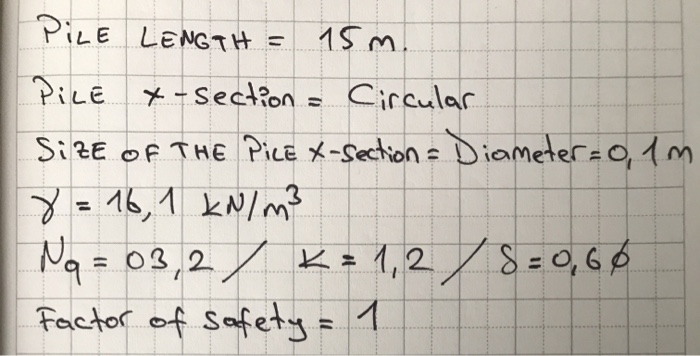 PiLE LENGTH = 15 m.
PiLE x-section = Circular
SiZE OF THE PiLE x-section = Diameter = 0,1 m
γ = 16,1 kN/m³
Nq = 03,2 / K = 1,2 / δ = 0,6 ϕ
Factor of safety = 1